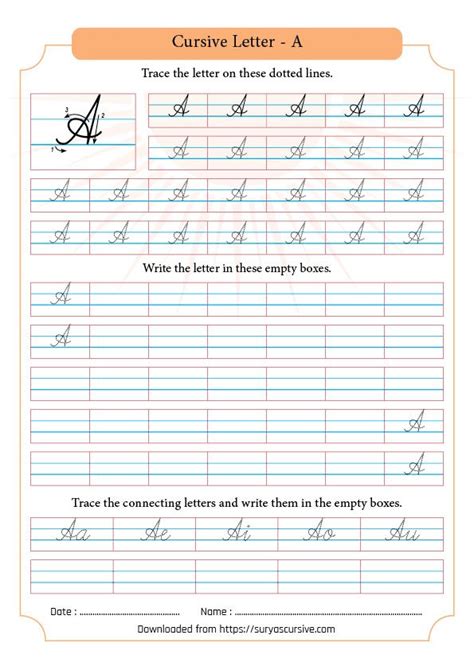 Cursive Letter - A
Trace the letter on these dotted lines.
3 A 2 1
A A A A A
A A A A A
A A A A A A A
A A A A A A A
Write the letter in these empty boxes.
A
A
A
A
Trace the connecting letters and write them in the empty boxes.
Aa Ae Ai Ao Au
Date : ........................................ Name : ........................................................................
Downloaded from https://suryascursive.com